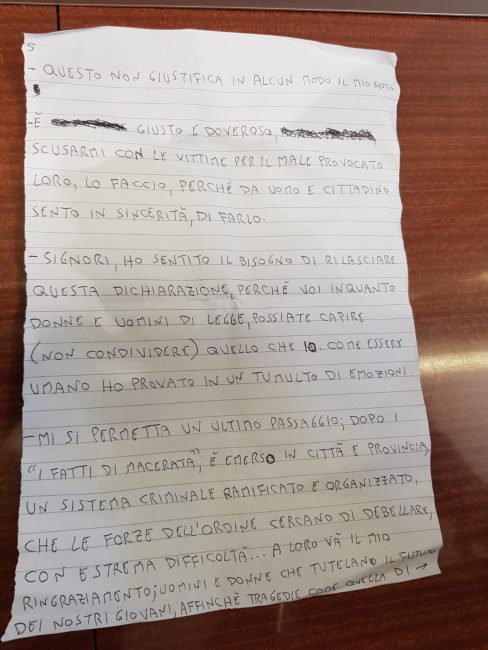 5
- QUESTO NON GIUSTIFICA IN ALCUN MODO IL MIO GESTO.
-È GIUSTO E DOVEROSO,
SCUSARMI CON LE VITTIME PER IL MALE PROVOCATO
LORO, LO FACCIO, PERCHÈ DA UOMO E CITTADINO
SENTO IN SINCERITÀ, DI FARLO.
- SIGNORI, HO SENTITO IL BISOGNO DI RILASCIARE
QUESTA DICHIARAZIONE, PERCHÈ VOI INQUANTO
DONNE E UOMINI DI LEGGE, POSSIATE CAPIRE
(NON CONDIVIDERE) QUELLO CHE IO. COME ESSERE
UMANO HO PROVATO IN UN TUMULTO DI EMOZIONI.
- MI SI PERMETTA UN ULTIMO PASSAGGIO; DOPO I
"I FATTI DI MACERATA", È EMERSO IN CITTÀ E PROVINCIA,
UN SISTEMA CRIMINALE RAMIFICATO E ORGANIZZATO,
CHE LE FORZE DELL'ORDINE CERCANO DI DEBELLARE,
CON ESTREMA DIFFICOLTÀ... A LORO VÀ IL MIO
RINGRAZIAMENTO; UOMINI E DONNE CHE TUTELANO IL FUTURO
DEI NOSTRI GIOVANI, AFFINCHÈ TRAGEDIE COME QUELLA DI →